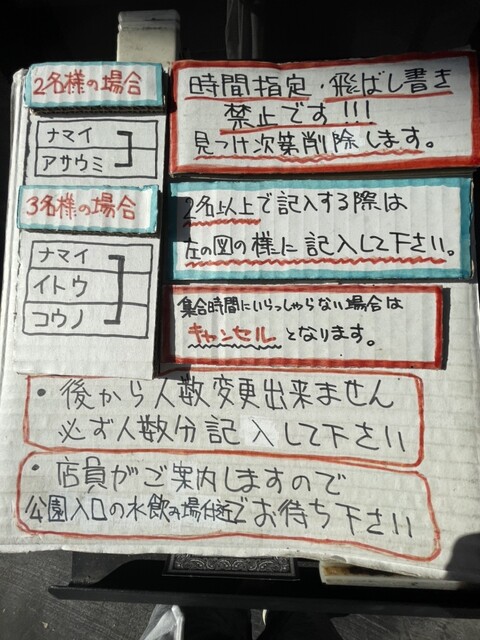 2名様の場合
ナマイ
アサウミ
3名様の場合
ナマイ
イトウ
コウノ
時間指定・飛ばし書き
禁止です!!!
見つけ次第削除します。
2名以上で記入する際は
左の図の様に記入して下さい。
集合時間にいらっしゃらない場合は
キャンセルとなります。
・後から人数変更出来ません
必ず人数分記入して下さい
・店員がご案内しますので
公園入口の水飲み場付近でお待ち下さい